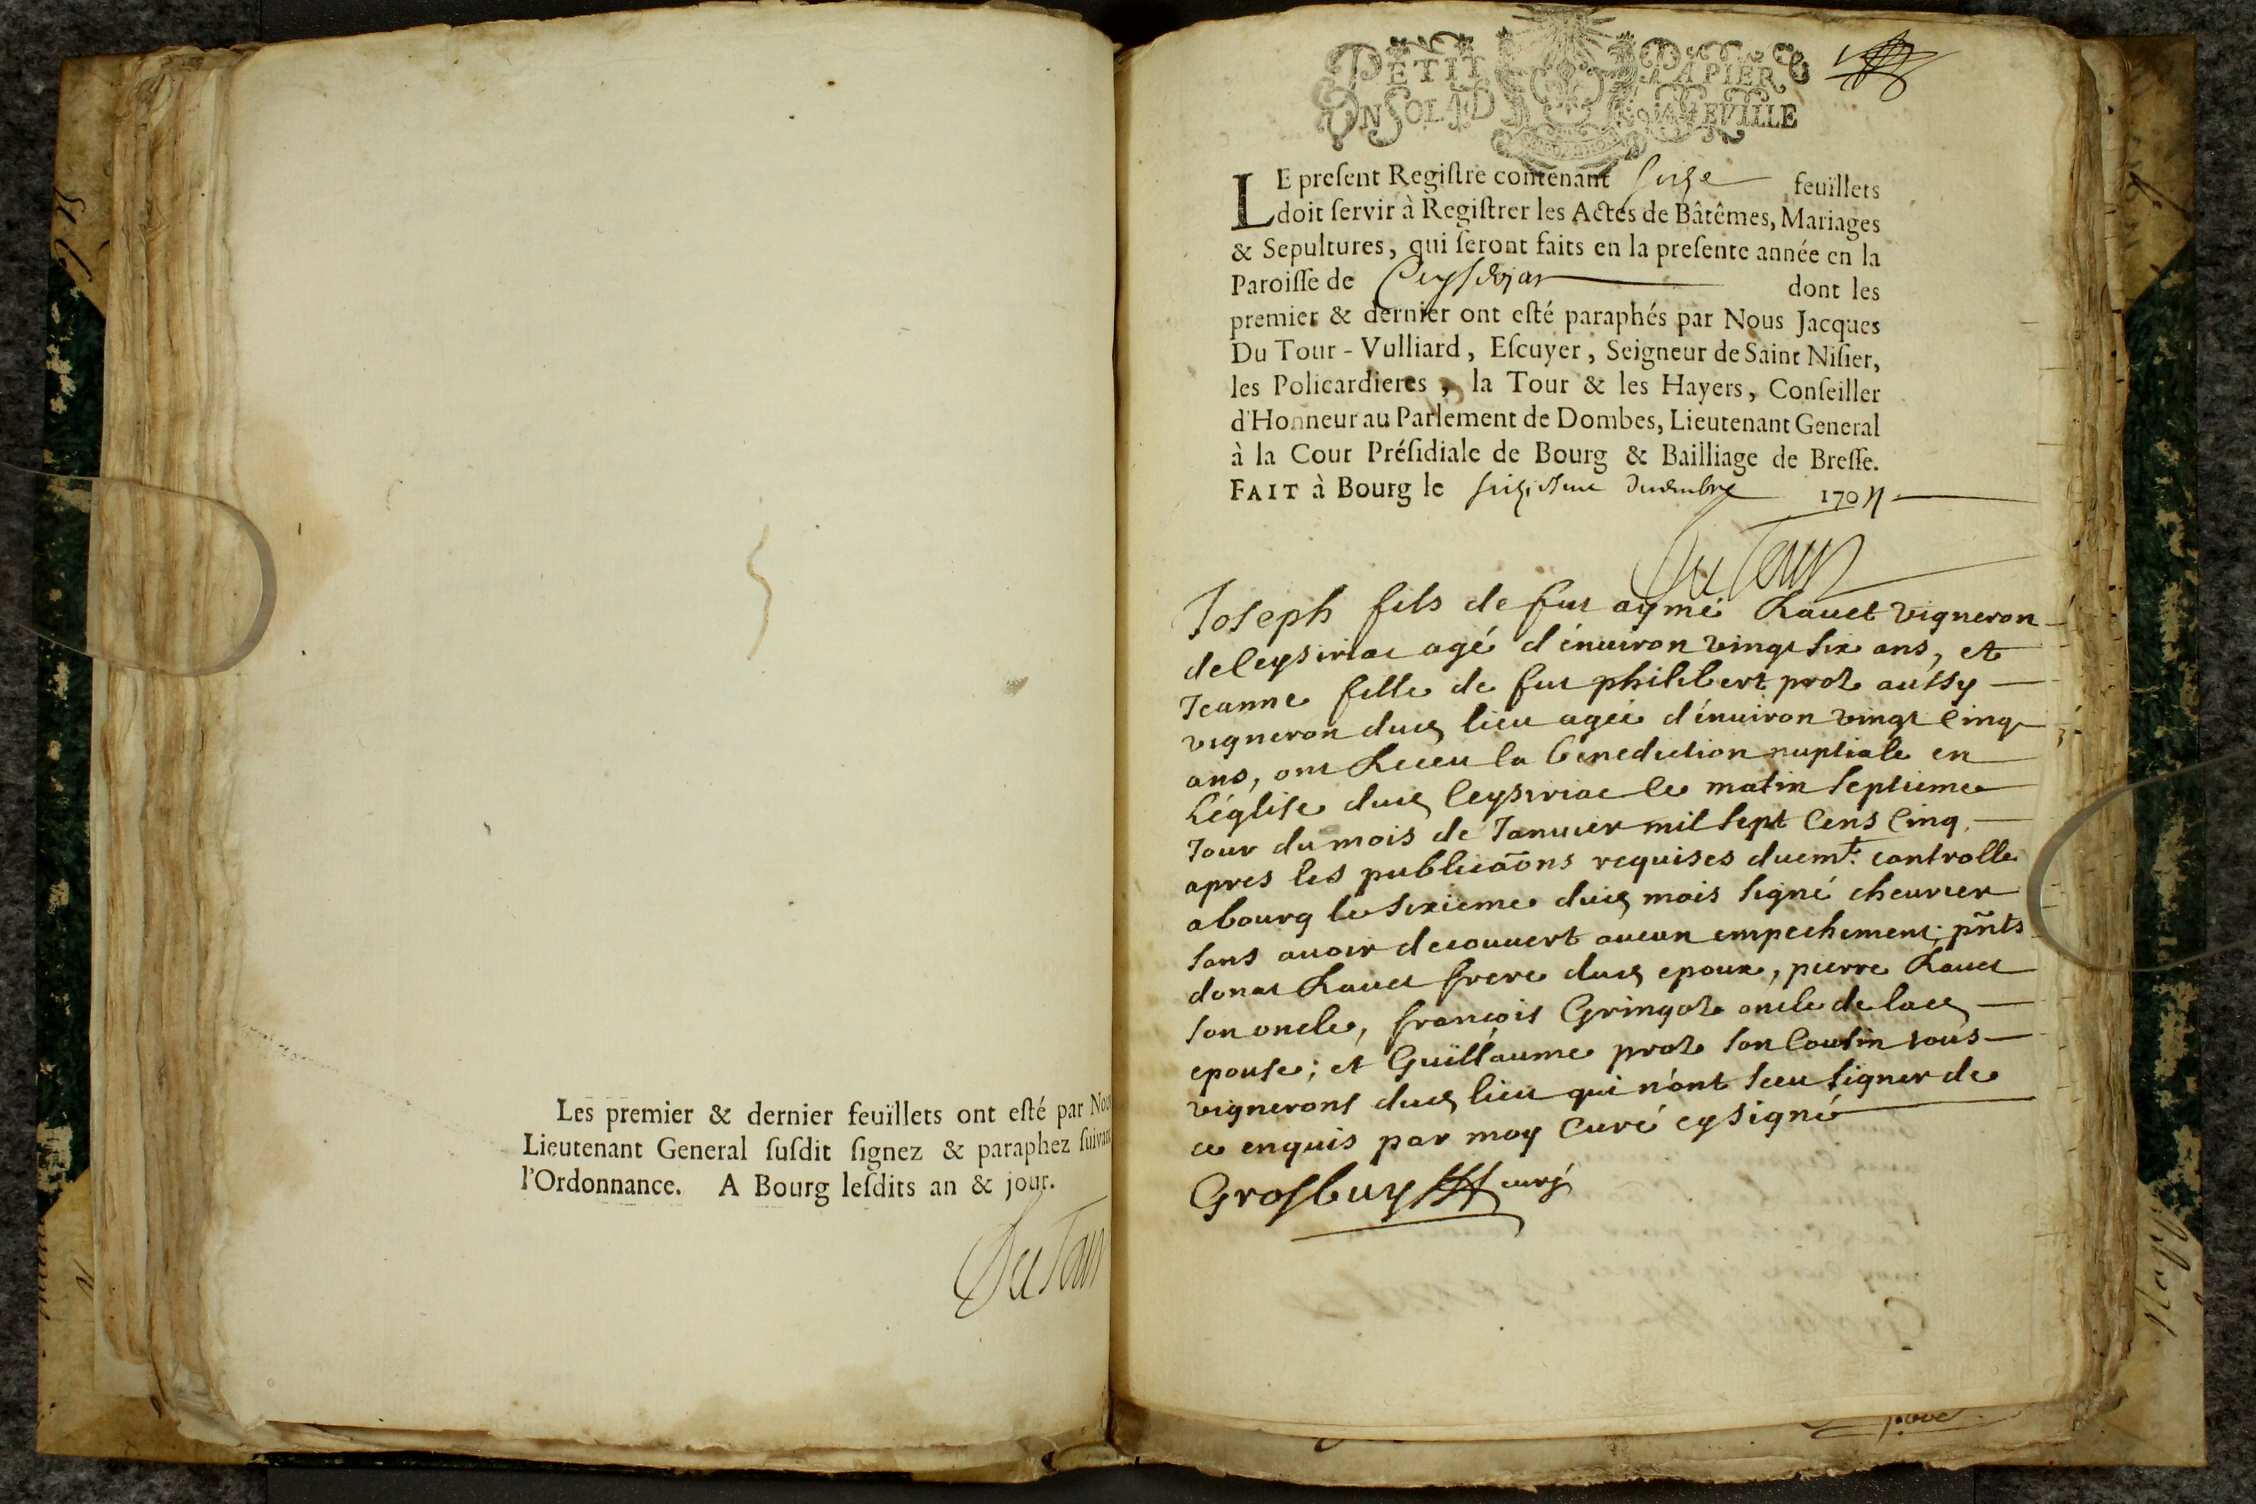 Les premier & dernier feuïllets ont eſté par
Lieutenant General ſuſdit ſignez & paraphez ſuivant
l'Ordonnance. A Bourg leſdits an & jour.
Du Tour
PETIT PAPIER
UN SOL 4 D LA FEVILLE
LE preſent Regiſtre contenant seize feuïllets
doit ſervir à Regiſtrer les Actes de Bâtêmes, Mariages
& Sepultures, qui ſeront faits en la preſente année en la
Paroiſſe de dont les
premier & dernier ont eſté paraphés par Nous Jacques
Du Tour - Vulliard, Eſcuyer, Seigneur de Saint Niſier,
les Policardieres, la Tour & les Hayers, Conſeiller
d'Honneur au Parlement de Dombes, Lieutenant General
à la Cour Préſidiale de Bourg & Bailliage de Breſſe.
FAIT à Bourg le 170
Du Tour
Joseph fils de fut aymé Ravet vigneron
de Ceysiriat agé d'énuiron vingt six ans, et
Jeanne fille de fut philibert prot aussy
vigneron dud lieu agée d'énuiron vingt cinq
ans, ont Receu la benediction nuptiale en
L'église dud Ceysiriat le matin septieme
Jour du mois de Januier mil sept cens cinq
apres les publicaõns requises duemt. controlle
a bourg le sixieme dud mois signé cheurier
sans auoir decouuert aucun empechement; pñts
donat Rauet frere dud epoux, pierre Rauet
son oncle, françois Gringoz oncle de lad
epouse; et Guillaume proz son Cousin tous
vignerons dud lieu qui n'ont sceu signer de
ce enquis par moy Curé cy signé
Grosbuy curé